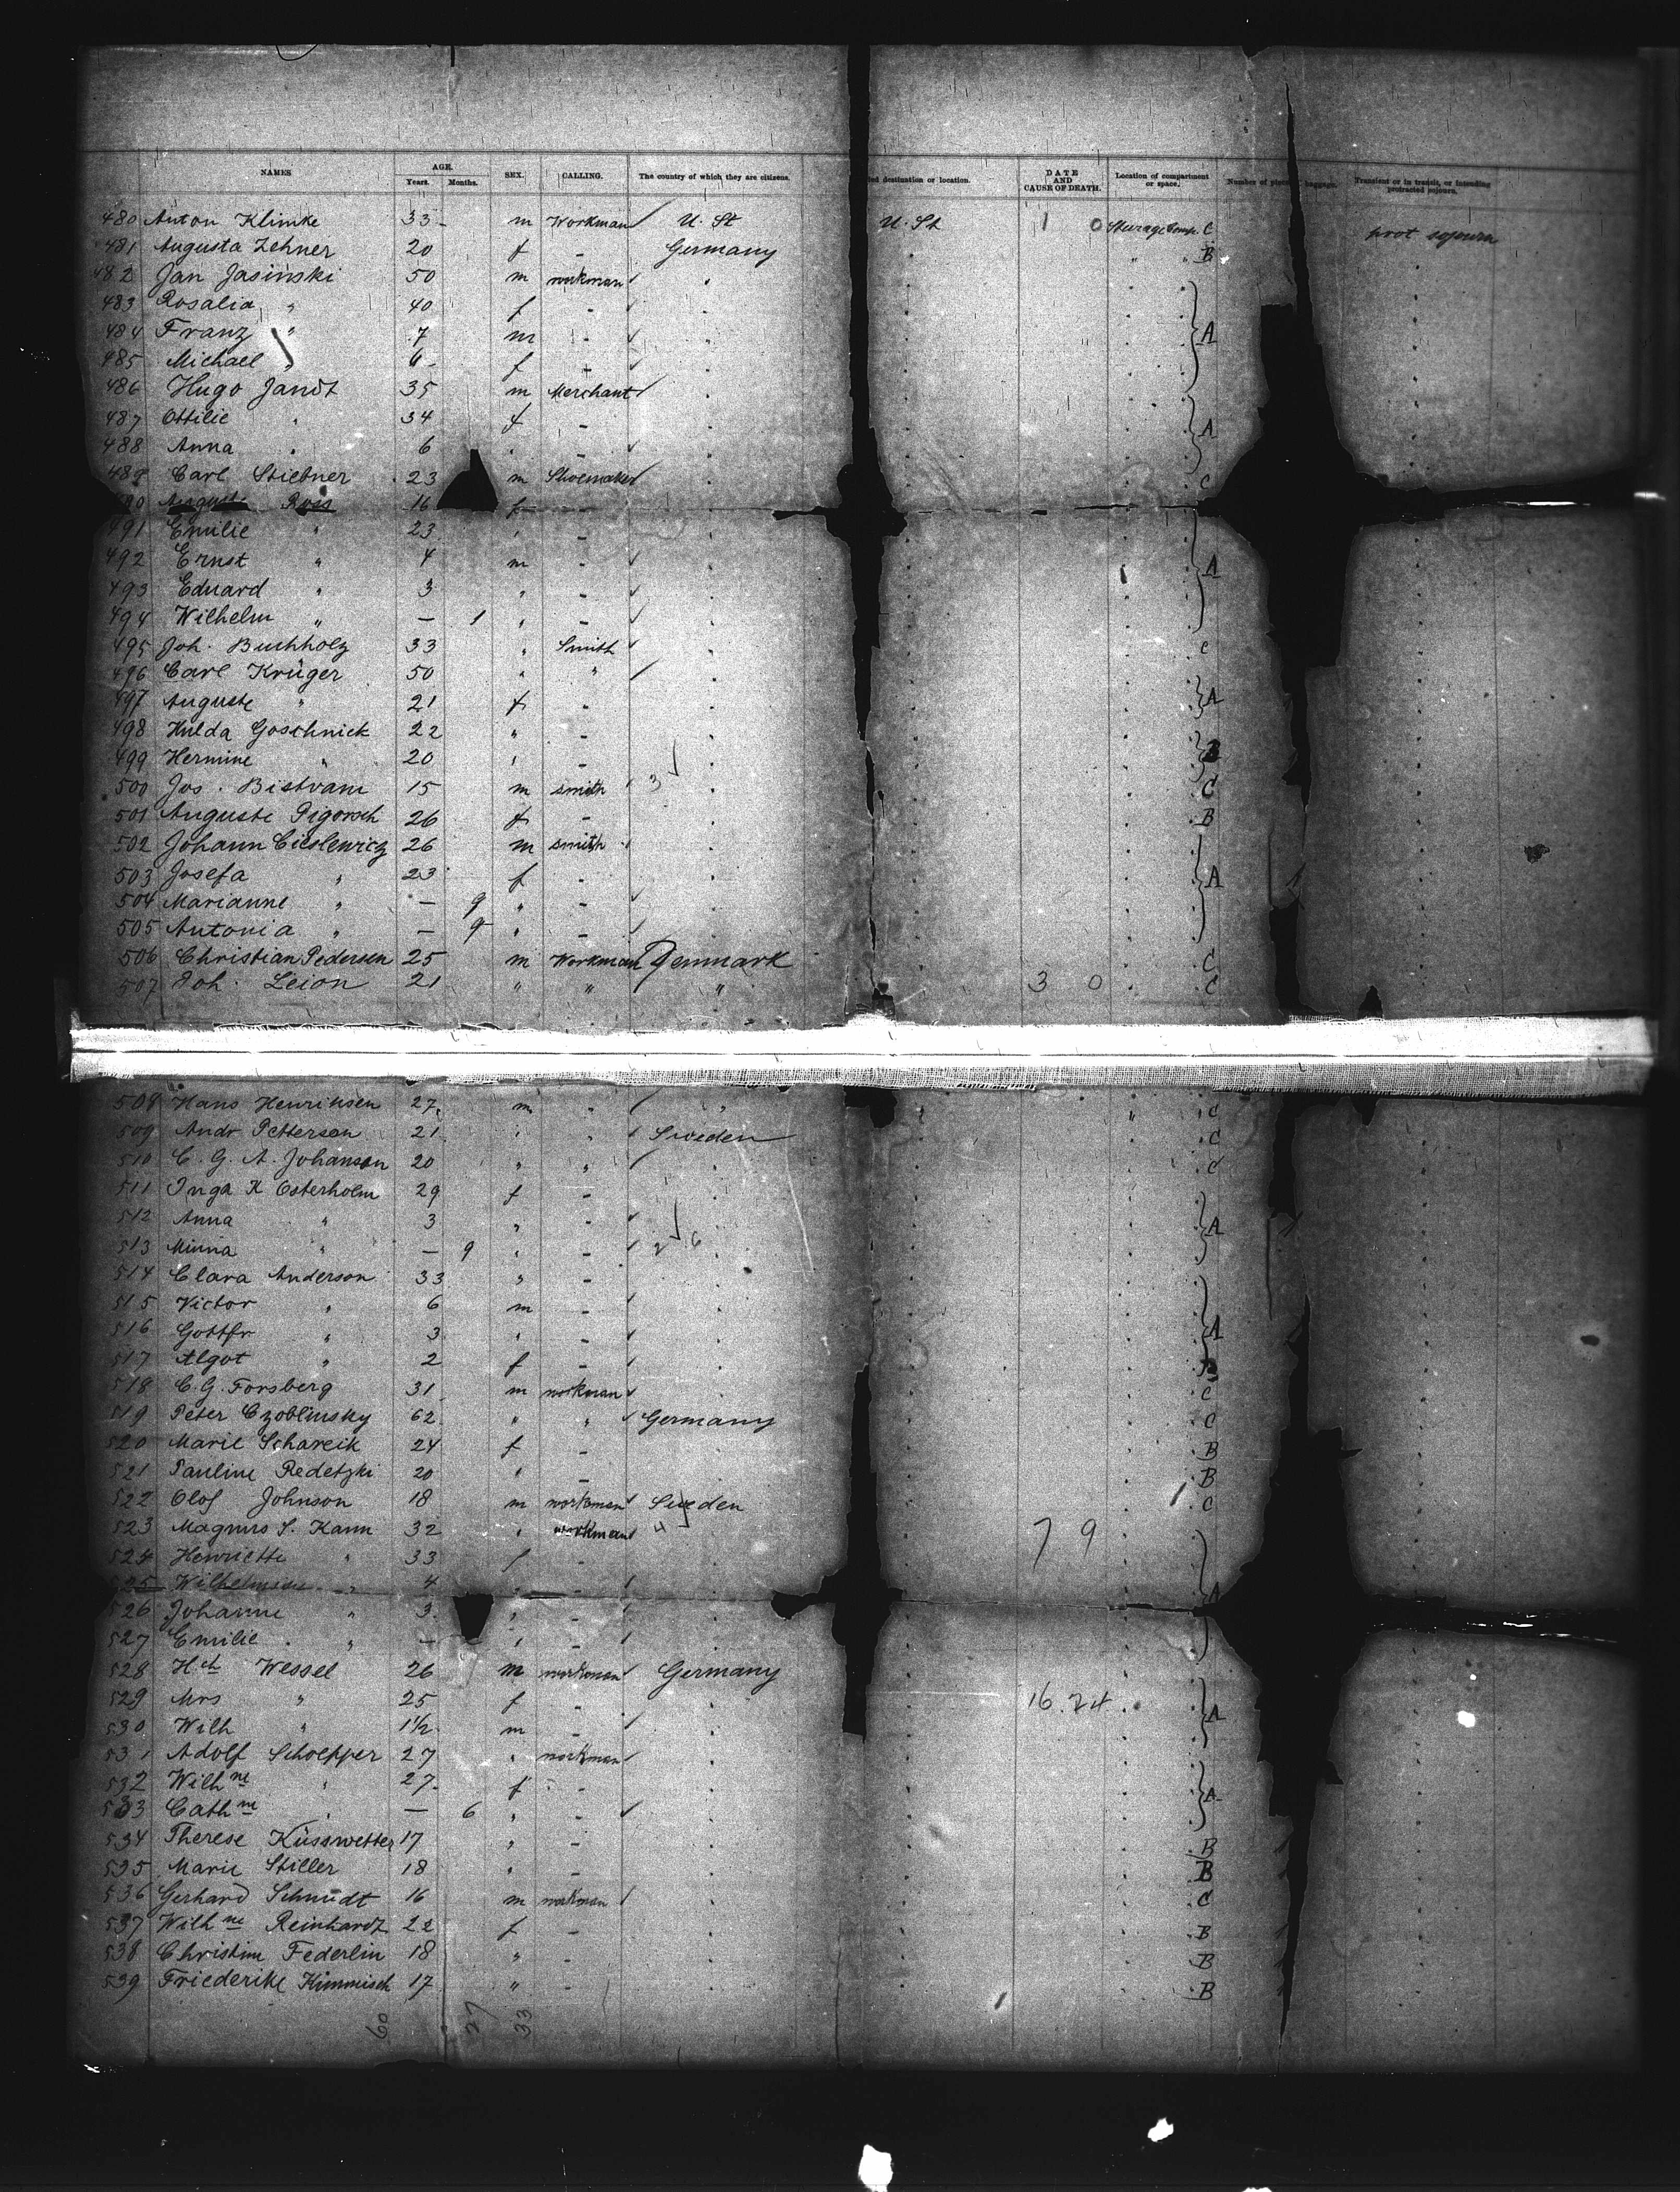 NAMES AGE. SEX. CALLING. The country of which they are citizens. destination or location. DATE AND CAUSE OF DEATH. Location of compartment or space. Number of baggage. Transient or in transit, or intending protracted sojourn.
Years. Months.
480 Anton Klimke 33 m Workman U. St U. St 1 0 Sturage Comp. C prot sojourn
481 Augusta Zehner 20 f - Germany B
482 Jan Jasinski 50 m workman
483 Rosalia " 40 f -
484 Franz " 7 m - A
485 Michael " 6 f -
486 Hugo Jandt 35 m Merchant
487 Ottilie " 34 f - A
488 Anna " 6 " -
489 Carl Stiebner 23 m Shoemaker C
490 Auguste Ross 16 f -
491 Emilie " 23 " -
492 Ernst " 4 m - A
493 Eduard " 3 " -
494 Wilhelm " — 1 " -
495 Joh. Buchholz 33 " Smith C
496 Carl Krüger 50 " "
497 Auguste " 21 f - A
498 Hulda Goschnick 22 " -
499 Hermine " 20 " - B
500 Jos. Bistram 15 m smith 3 C
501 Auguste Pigorsch 26 f - B
502 Johann Cieslewicz 26 m smith
503 Josefa " 23 f - A
504 Marianne " — 9 " -
505 Antonia " — 9 " -
506 Christian Pedersen 25 m Workman Denmark C
507 Joh. Leion 21 " " " 3 0 C
508 Hans Henriksen 27 m " " C
509 Andr Petterson 21 " " Sweden C
510 C. G. A. Johanson 20 " " C
511 Inga K Osterholm 29 f -
512 Anna " 3 " - A
513 Minna " — 9 " - 2 6
514 Clara Anderson 33 " -
515 Victor " 6 m -
516 Gottfr " 3 " - A
517 Algot " 2 f -
518 C. G. Forsberg 31 m workman C
519 Peter Czoblinsky 62 " " Germany C
520 Marie Schareik 24 f - B
521 Pauline Redetzki 20 " - B
522 Olof Johnson 18 m workman Sweden C
523 Magnus S. Kann 32 " workman 4 7 9
524 Henriette " 33 f -
525 Wilhelmine " 4 " - A
526 Johanne " 3 " -
527 Emilie " — " -
528 Hch Wessel 26 m workman Germany
529 Mrs " 25 f - 16. 24 A
530 Wilh " 1½ m -
531 Adolf Schoepper 27 " workman
532 Wilhne " 27 f - A
533 Cathne " — 6 " -
534 Therese Küsswetter 17 " - B
535 Marie Stiller 18 " - B
536 Gerhard Schmidt 16 m workman C
537 Wilhne Reinhardt 22 f - B
538 Christine Federlin 18 " - B
539 Friederike Kimmisch 17 " - B
60 27 33